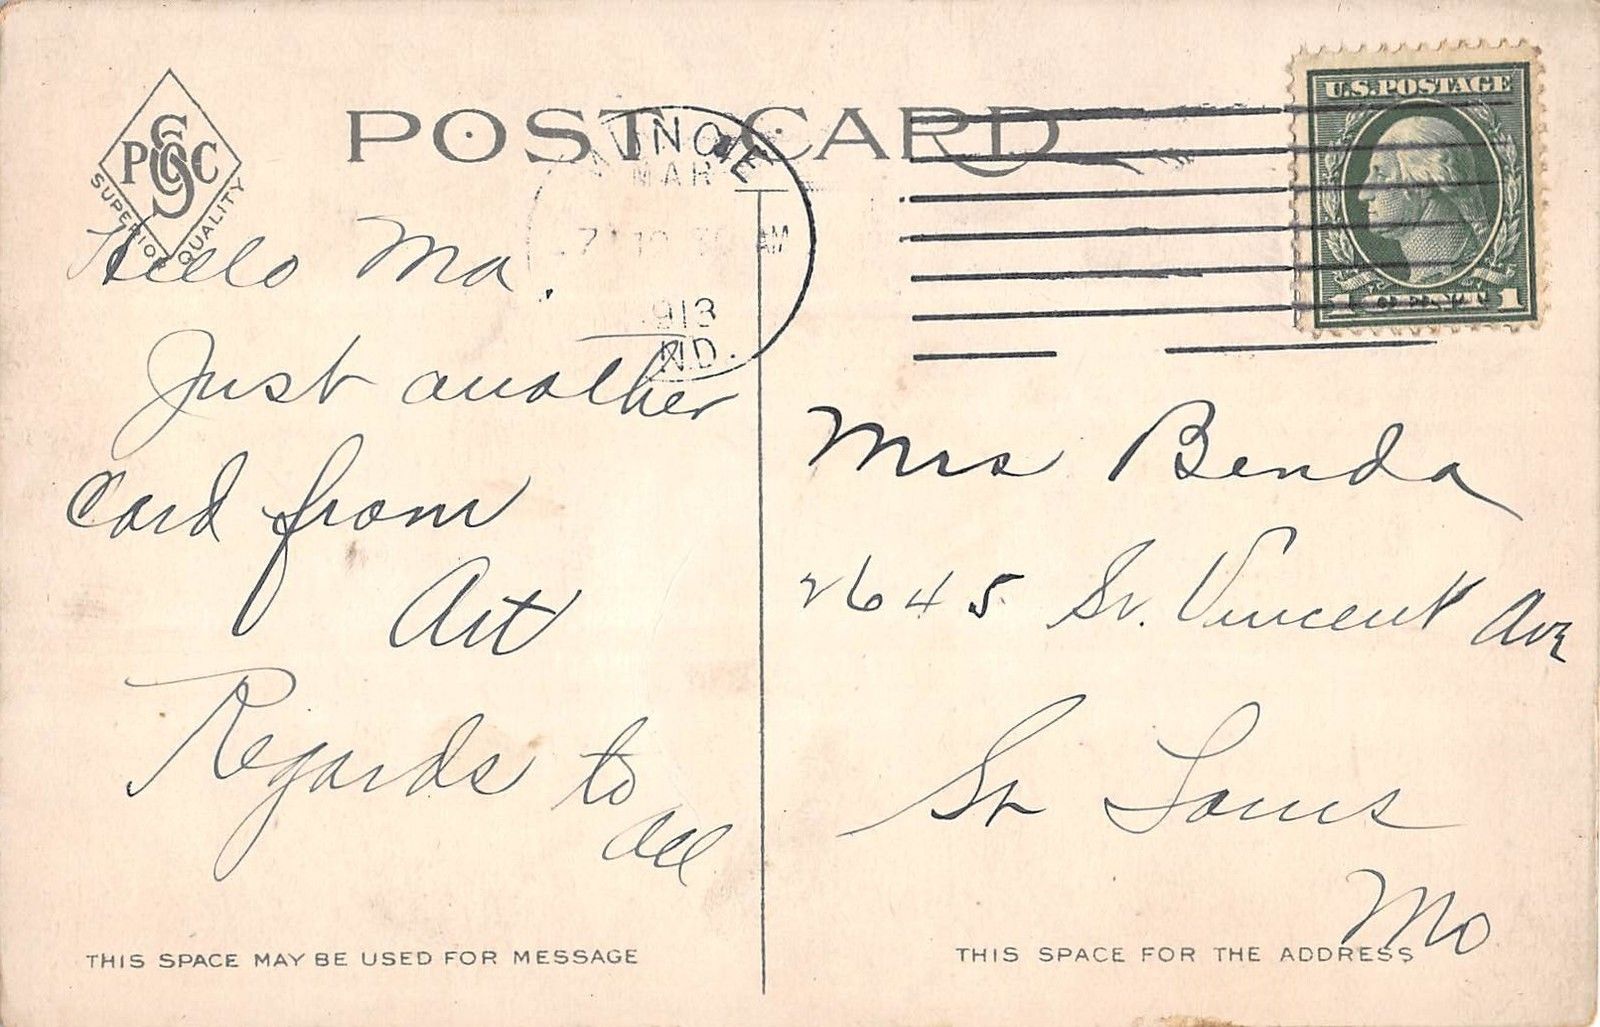 POST CARD
SUPERIOR QUALITY
MAR
7
AM
1913
IND.
U.S. POSTAGE
1
Hello Ma.
Just another
Card from
Art
Regards to
all
Mrs Benda
2645 St. Vincent Ave
St Louis
Mo
THIS SPACE MAY BE USED FOR MESSAGE
THIS SPACE FOR THE ADDRESS